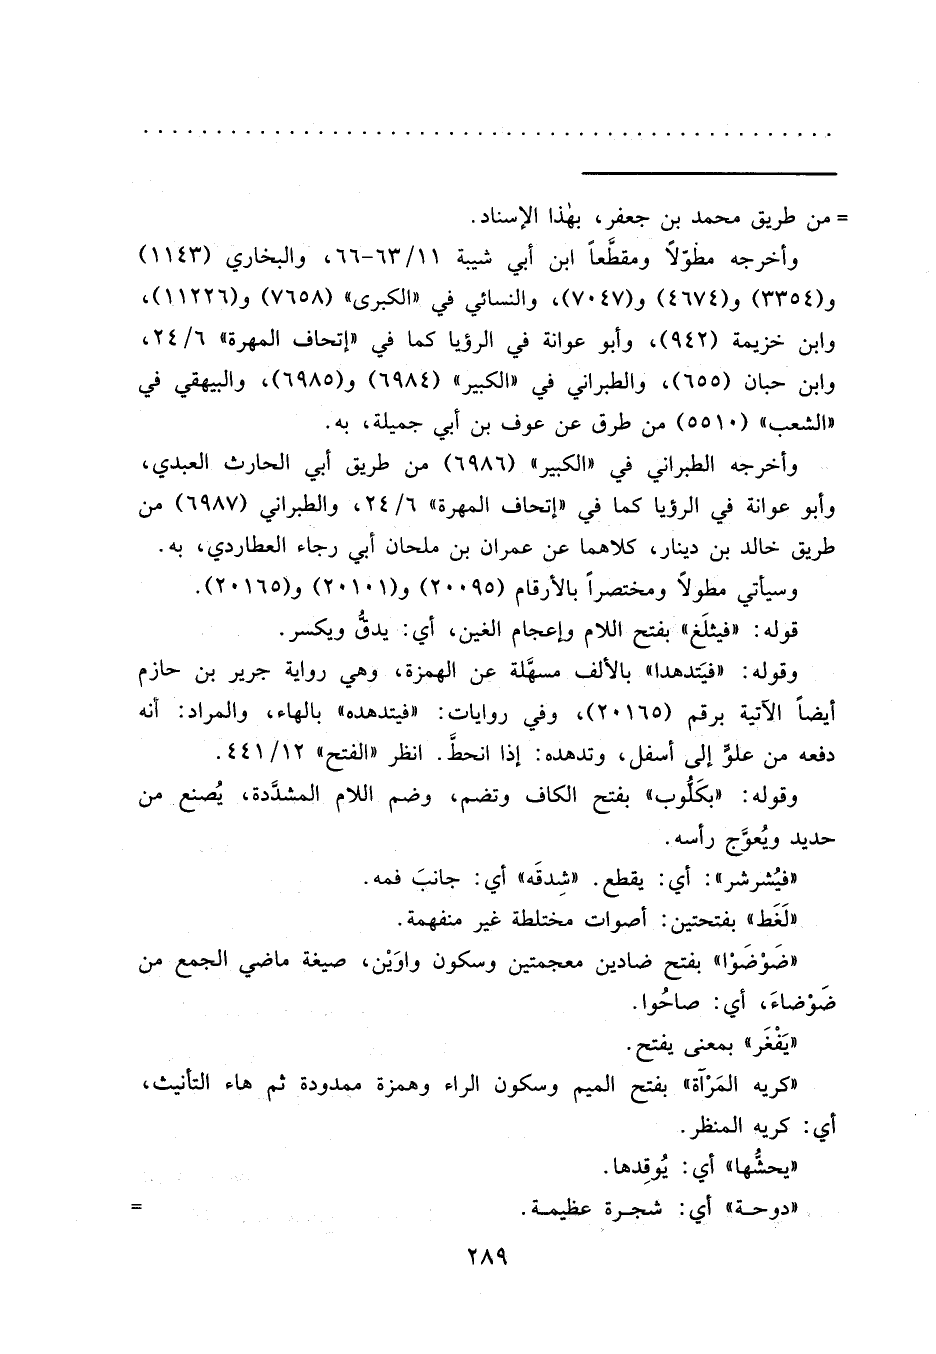 . . . . . . . . . . . . . . . . . . . . . . . . . . . . . . . . . . . . . . . . . . . . . . . .
= من طريق محمد بن جعفر، بهٰذا الإسناد.
وأخرجه مطوّلاً ومقطَّعاً ابن أبي شيبة ١١/ ٦٣-٦٦، والبخاري (١١٤٣)
و(٣٣٥٤) و(٤٦٧٤) و(٧٠٤٧)، والنسائي في «الكبرى» (٧٦٥٨) و(١١٢٢٦)،
وابن خزيمة (٩٤٢)، وأبو عوانة في الرؤيا كما في «إتحاف المهرة» ٦/ ٢٤،
وابن حبان (٦٥٥)، والطبراني في «الكبير» (٦٩٨٤) و(٦٩٨٥)، والبيهقي في
«الشعب» (٥٥١٠) من طرق عن عوف بن أبي جميلة، به.
وأخرجه الطبراني في «الكبير» (٦٩٨٦) من طريق أبي الحارث العبدي،
وأبو عوانة في الرؤيا كما في «إتحاف المهرة» ٦/ ٢٤، والطبراني (٦٩٨٧) من
طريق خالد بن دينار، كلاهما عن عمران بن ملحان أبي رجاء العطاردي، به.
وسيأتي مطولاً ومختصراً بالأرقام (٢٠٠٩٥) و(٢٠١٠١) و(٢٠١٦٥).
قوله: «فيثلَغ» بفتح اللام وإعجام الغين، أي: يدقُّ ويكسر.
وقوله: «فيَتدهدا» بالألف مسهَّلة عن الهمزة، وهي رواية جرير بن حازم
أيضاً الآتية برقم (٢٠١٦٥)، وفي روايات: «فيتدهده» بالهاء، والمراد: أنه
دفعه من علوٍّ إلى أسفل، وتدهده: إذا انحطَّ. انظر «الفتح» ١٢/ ٤٤١.
وقوله: «بكَلُّوب» بفتح الكاف وتضم، وضم اللام المشدَّدة، يُصنع من
حديد ويُعوَّج رأسه.
«فيُشرشر»: أي: يقطع. «شِدقَه» أي: جانبَ فمه.
«لَغَط» بفتحتين: أصوات مختلطة غير منفهمة.
«ضَوْضَوْا» بفتح ضادين معجمتين وسكون واوَيْن، صيغة ماضي الجمع من
ضَوْضاءَ، أي: صاحُوا.
«يَفْغَر» بمعنى يفتح.
«كريه المَرْآة» بفتح الميم وسكون الراء وهمزة ممدودة ثم هاء التأنيث،
أي: كريه المنظر.
«يحشُّها» أي: يُوقِدها.
«دوحة» أي: شجرة عظيمة. =
٢٨٩